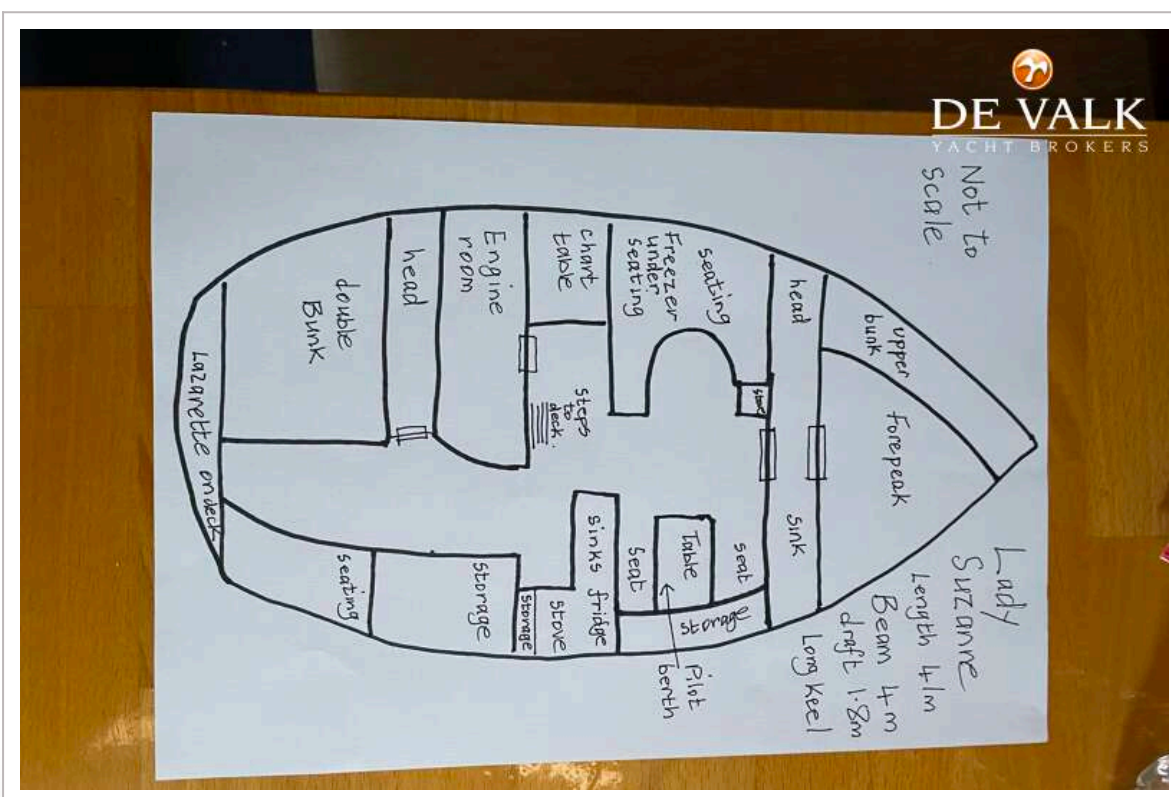 DE VALK
YACHT BROKERS
Not to
scale
Lady
Suzanne
Length 41m
Beam 4m
draft 1.8m
Long Keel
upper
bunk
Forepeak
head
sink
seating
Freezer
under
seating
store
seat
Table
seat
storage
Pilot
berth
chart
table
steps
to
deck.
sinks fridge
stove
storage
Engine
room
head
storage
double
Bunk
seating
Lazarette on deck